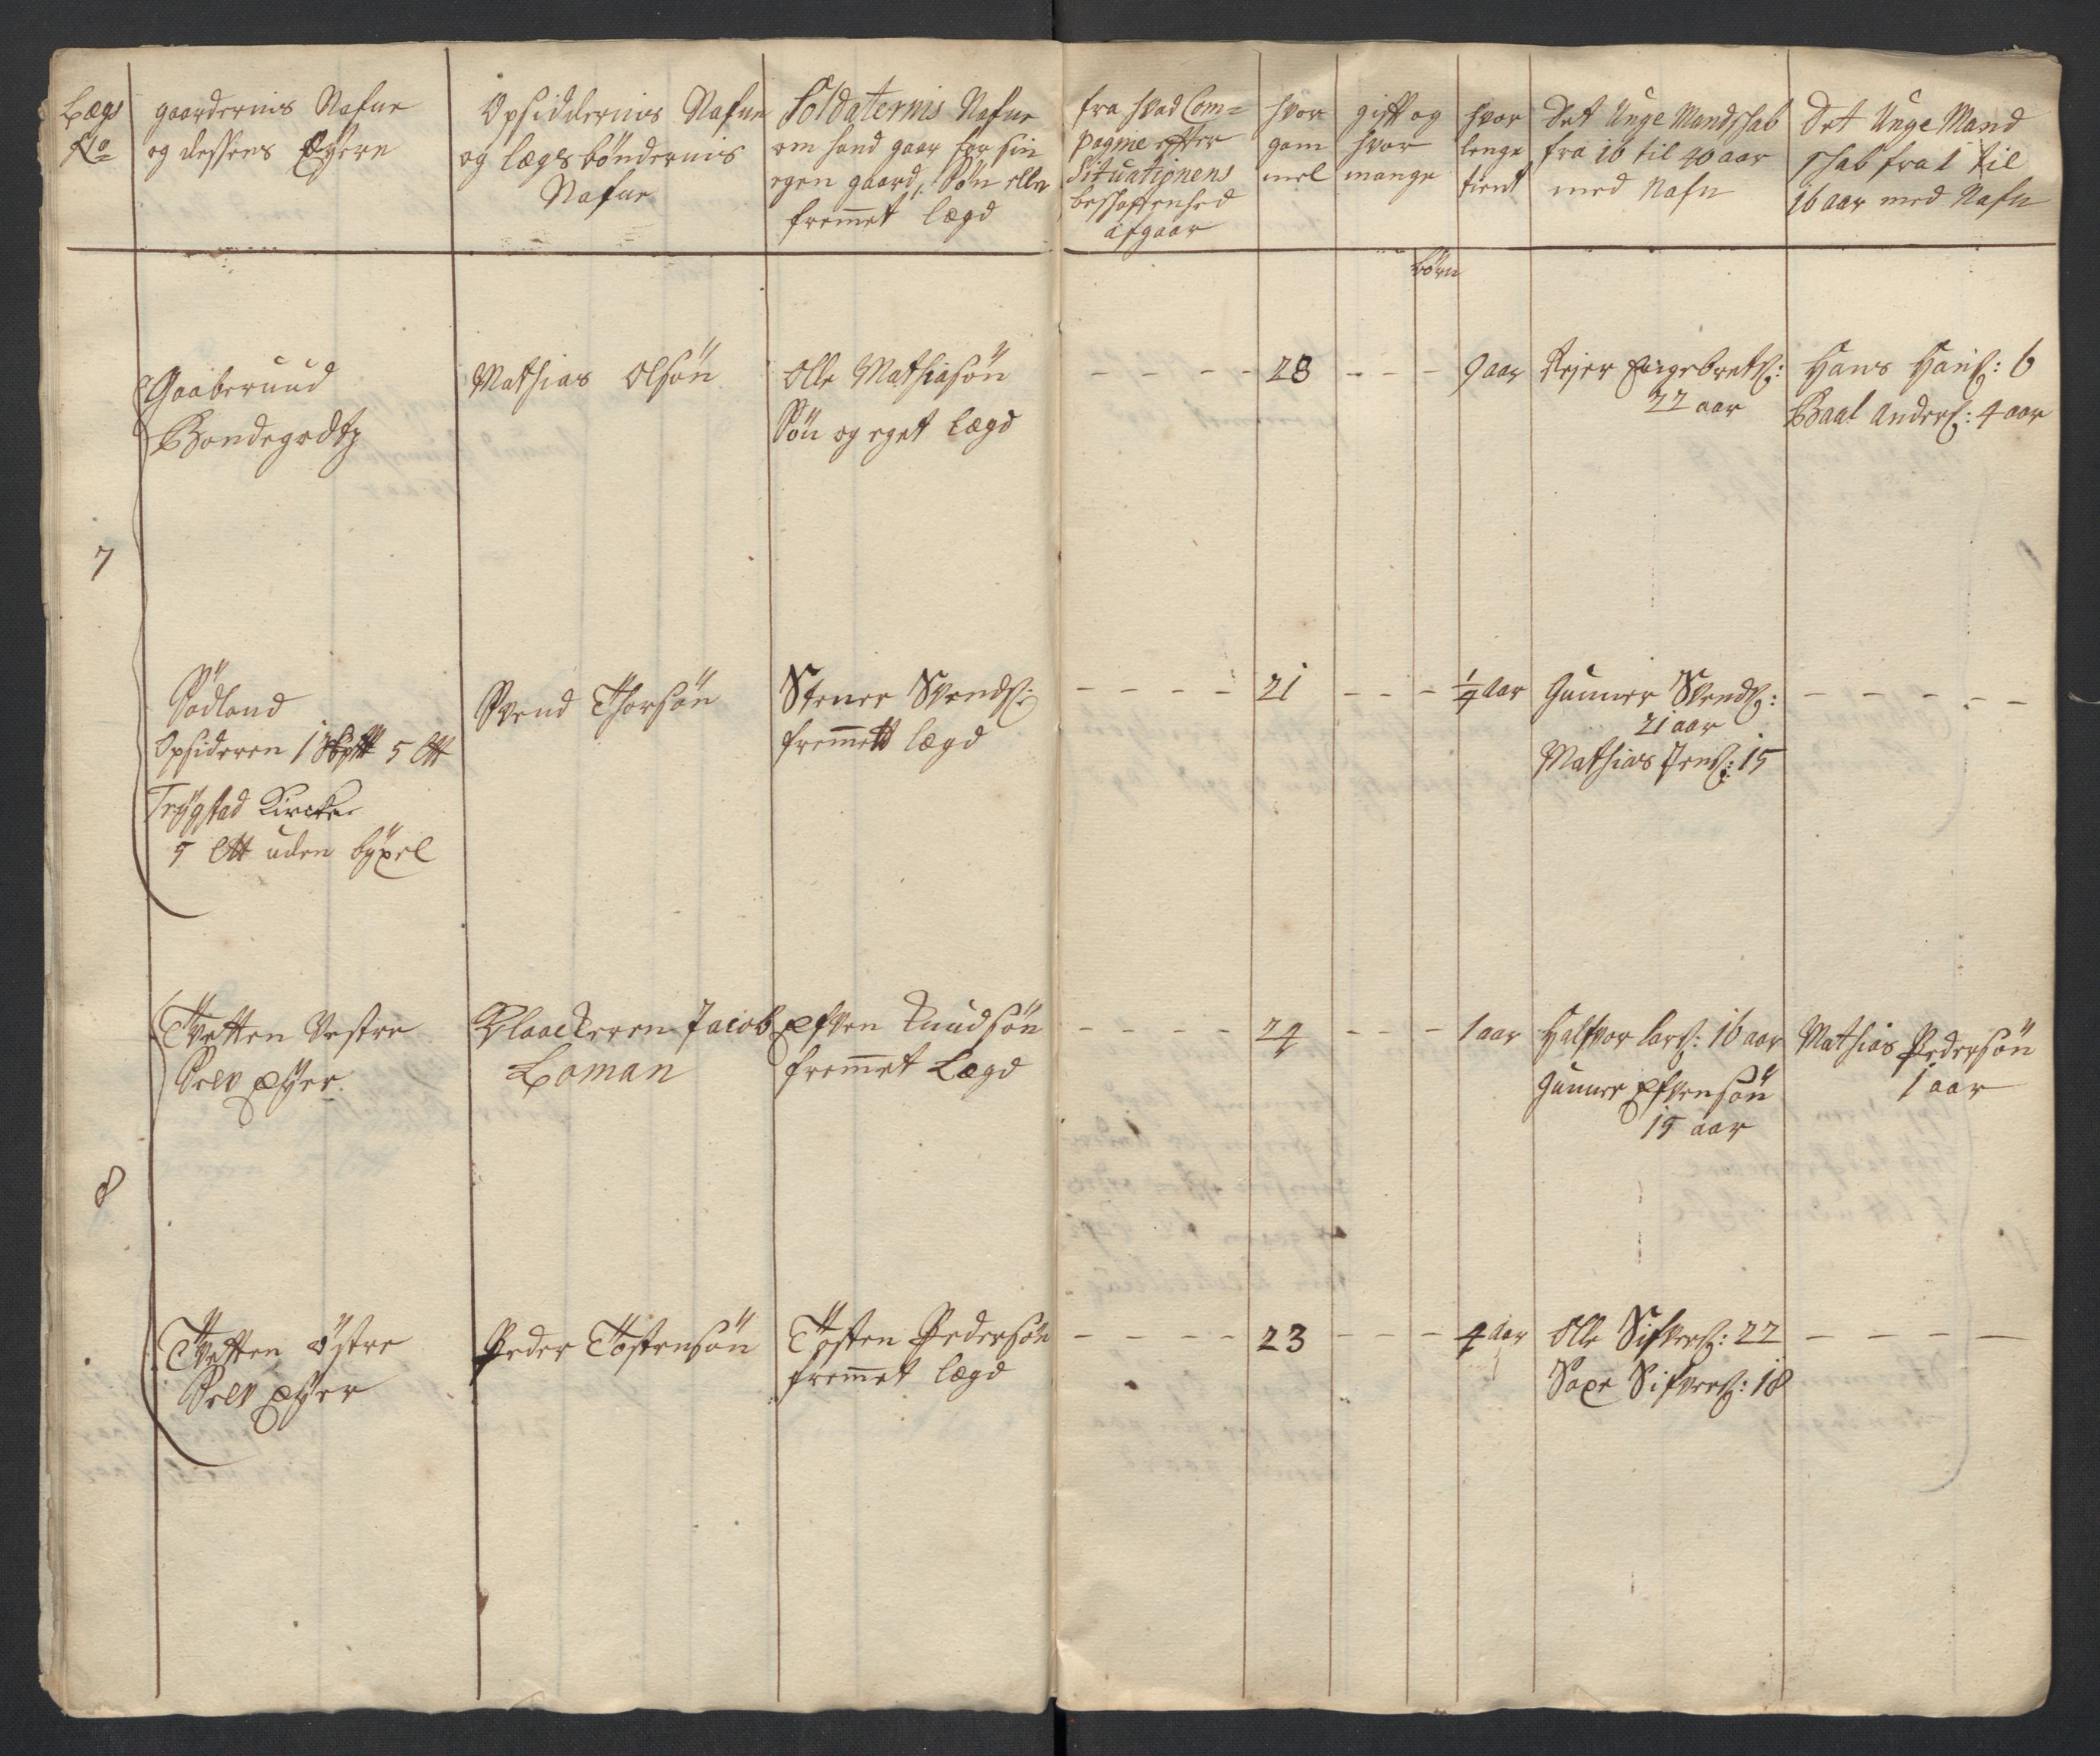 Lægs
No
gaardernis Nafne
og dessens Eyere
Opsiddernis Nafne
og lægsbøndernis
Nafne
Soldaternis Nafne
om hand gaar for sin
egen gaard, Søn eller
fremmet lægd
fra hvad Com-
pagnie efter
Situationens
beschaffenhed
afgaar
hvor
gam
mel
gift og
hvor
mange
börn
hvor
lenge
tient
Det Unge Mandschab
fra 16 til 40 aar
med Nafn
Det Unge Mand
schab fra 1 til
16 aar med Nafn
7
Gaaberuud
Bondegodtz
Mathias Olsön
Olle Mathiasön
Sön og eget lægd
- - - - 28 - - - 9 aar
Rejer Engebretß:
22 aar
Hans Hanß: 6
Paal Anderß: 4 aar
Södland
Opsideren 1 5 ltt
Trygstad Kircke
5 ltt uden byxel
Svend Thorsön
Stener Svendß:
fremmet lægd
- - - - 21 - - - 1/4 aar
Gunner Svendß:
21 aar
Mathias Jenß: 15
- - - - -
8
Tvetten Vestre
Selv Eyer
Klaackeren Jacob
Loman
Efven Knudsön
fremmet Lægd
- - - - 24 - - - 1 aar
Halfvor larß: 16 aar
Gunner Efvensön
15 aar
Mathias Pedersön
1 aar
Tvetten östre
Selv Eyer
Peder Tostensön
Tosten Pedersön
fremmet lægd
- - - - 23 - - - 4 aar
Olle Sifverß: 22
Saxe Sifverß: 18
- - - -